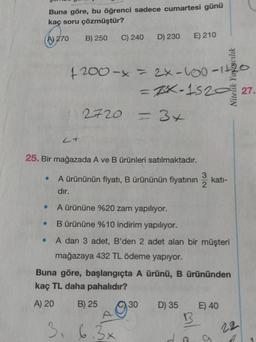 Buna göre, bu öğrenci sadece cumartesi günü
kaç soru çözmüştür?
A) 270 B) 250 C) 240 D) 230 E) 210
1200-x = 2x-600-1
= 2x-1520
2720 = 3x
Nitelik Yayıncılık
27.
25. Bir mağazada A ve B ürünleri satılmaktadır.
• A ürününün fiyatı, B ürününün fiyatının 3/2 katı-
dır.
• A ürününe %20 zam yapılıyor.
• B ürününe %10 indirim yapılıyor.
• A dan 3 adet, B'den 2 adet alan bir müşteri
mağazaya 432 TL ödeme yapıyor.
Buna göre, başlangıçta A ürünü, B ürününden
kaç TL daha pahalıdır?
A) 20 B) 25 C) 30 D) 35 E) 40
A B
3. 6.3x
22